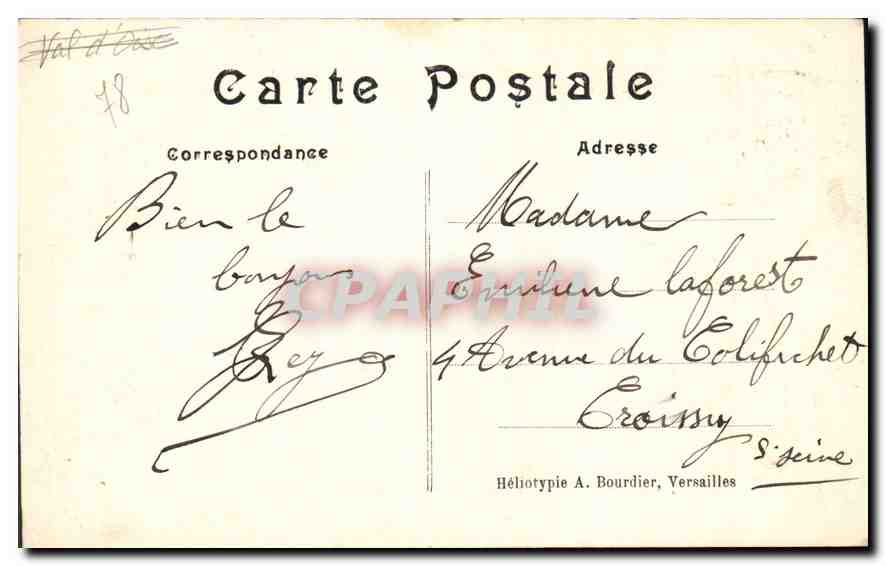 Val d'Oise
78
Carte Postale
Correspondance
Adresse
Bien le
bonjour
Rey
Madame
Emilienne Laforest
4 Avenue du Colifichet
Croissy
s. seine
CPAPHIL
Héliotypie A. Bourdier, Versailles